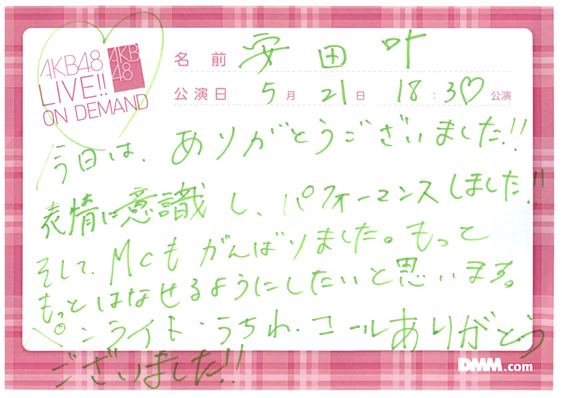 AKB48
LIVE!!
ON DEMAND
AKB
48
名前 安田叶
公演日 5月21日 18:30公演
今日は、ありがとうございました!!
表情に意識し、パフォーマンスしました!!
そして、MCもがんばりました。もっと
もっとはなせるようにしたいと思います。
ペンライト・うちわ・コールありがとう
ございました!!
DMM.com